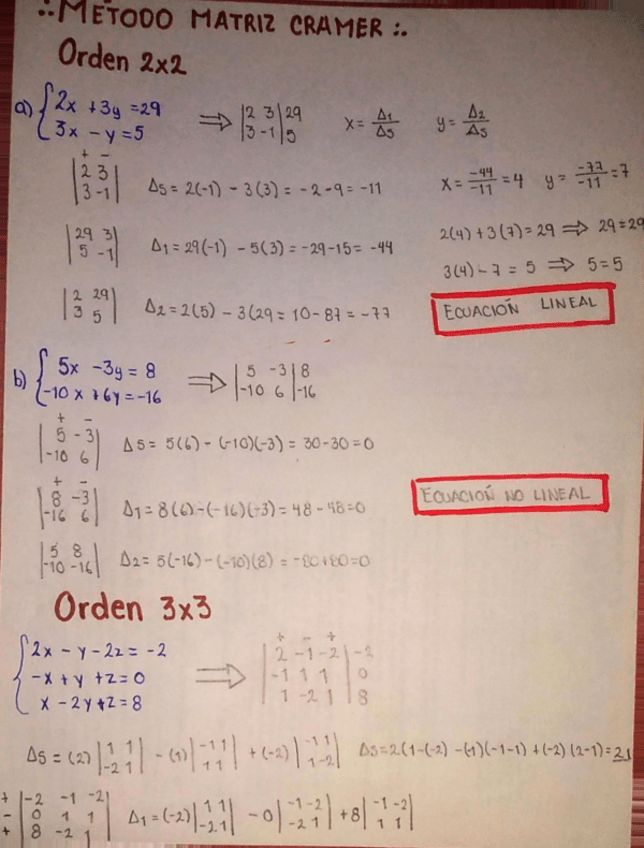 ∴ METODO MATRIZ CRAMER ∴
Orden 2x2
a) { 2x + 3y = 29
3x - y = 5
⇒ |2 3| 29
|3 -1| 5
x = Δ1/Δs y = Δ2/Δs
+ -
|2 3|
|3 -1|
Δs = 2(-1) - 3(3) = -2-9 = -11
x = -44/-11 = 4 y = -77/-11 = 7
|29 3|
|5 -1|
Δ1 = 29(-1) - 5(3) = -29-15 = -44
2(4) + 3(7) = 29 ⇒ 29 = 29
3(4) - 7 = 5 ⇒ 5 = 5
|2 29|
|3 5|
Δ2 = 2(5) - 3(29 = 10 - 87 = -77
ECUACIÓN LINEAL
b) { 5x - 3y = 8
-10x + 6y = -16
⇒ |5 -3| 8
|-10 6| -16
+ -
|5 -3|
|-10 6|
Δs = 5(6) - (-10)(-3) = 30-30 = 0
+ -
|8 -3|
|-16 6|
Δ1 = 8(6) - (-16)(-3) = 48 - 48 = 0
ECUACIÓN NO LINEAL
|5 8|
|-10 -16|
Δ2 = 5(-16) - (-10)(8) = -80+80 = 0
Orden 3x3
{ 2x - y - 2z = -2
-x + y + z = 0
x - 2y + z = 8
⇒
+ - +
|2 -1 -2| -2
|-1 1 1| 0
|1 -2 1| 8
Δs = (2) |1 1| - (1) |-1 1| + (-2) |-1 1|
|-2 1| |1 1| |1 -2|
Δs = 2(1-(-2) - (-1)(-1-1) + (-2)(2-1) =
+ |-2 -1 -2|
- |0 1 1|
+ |8 -2 1|
Δ1 = (-2) |1 1| - 0 |-1 -2| + 8 |-1 -2|
|-2 1| |-2 1| |1 1|